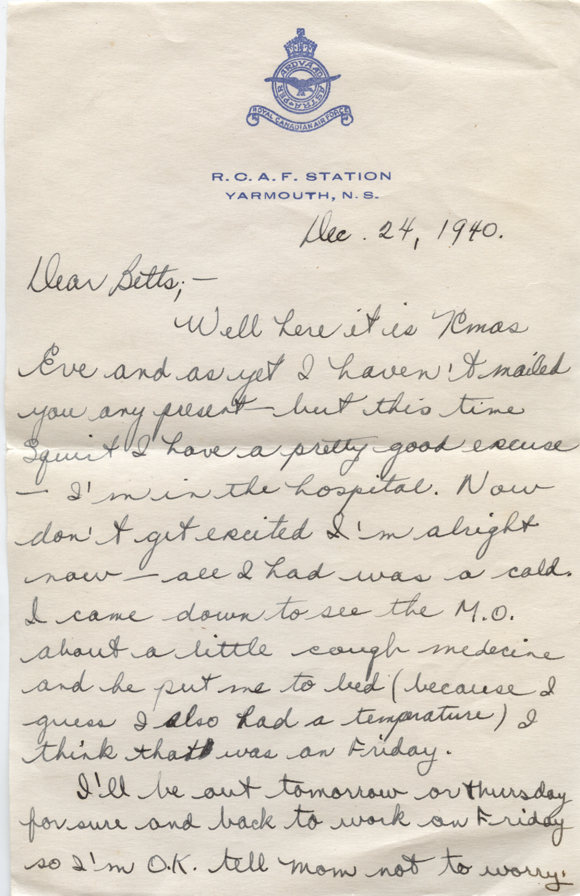 PER ARDUA AD ASTRA
ROYAL CANADIAN AIR FORCE
R.C.A.F. STATION
YARMOUTH, N.S.
Dec. 24, 1940.
Dear Betts; —
Well here it is Xmas
Eve and as yet I haven't mailed
you any present — but this time
Squirt I have a pretty good excuse
— I'm in the hospital. Now
don't get excited I'm alright
now — all I had was a cold.
I came down to see the M.O.
about a little cough medecine
and he put me to bed (because I
guess I also had a temperature) I
think that was on Friday.
I'll be out tomorrow or thursday
for sure and back to work on Friday
so I'm O.K. tell Mom not to worry.